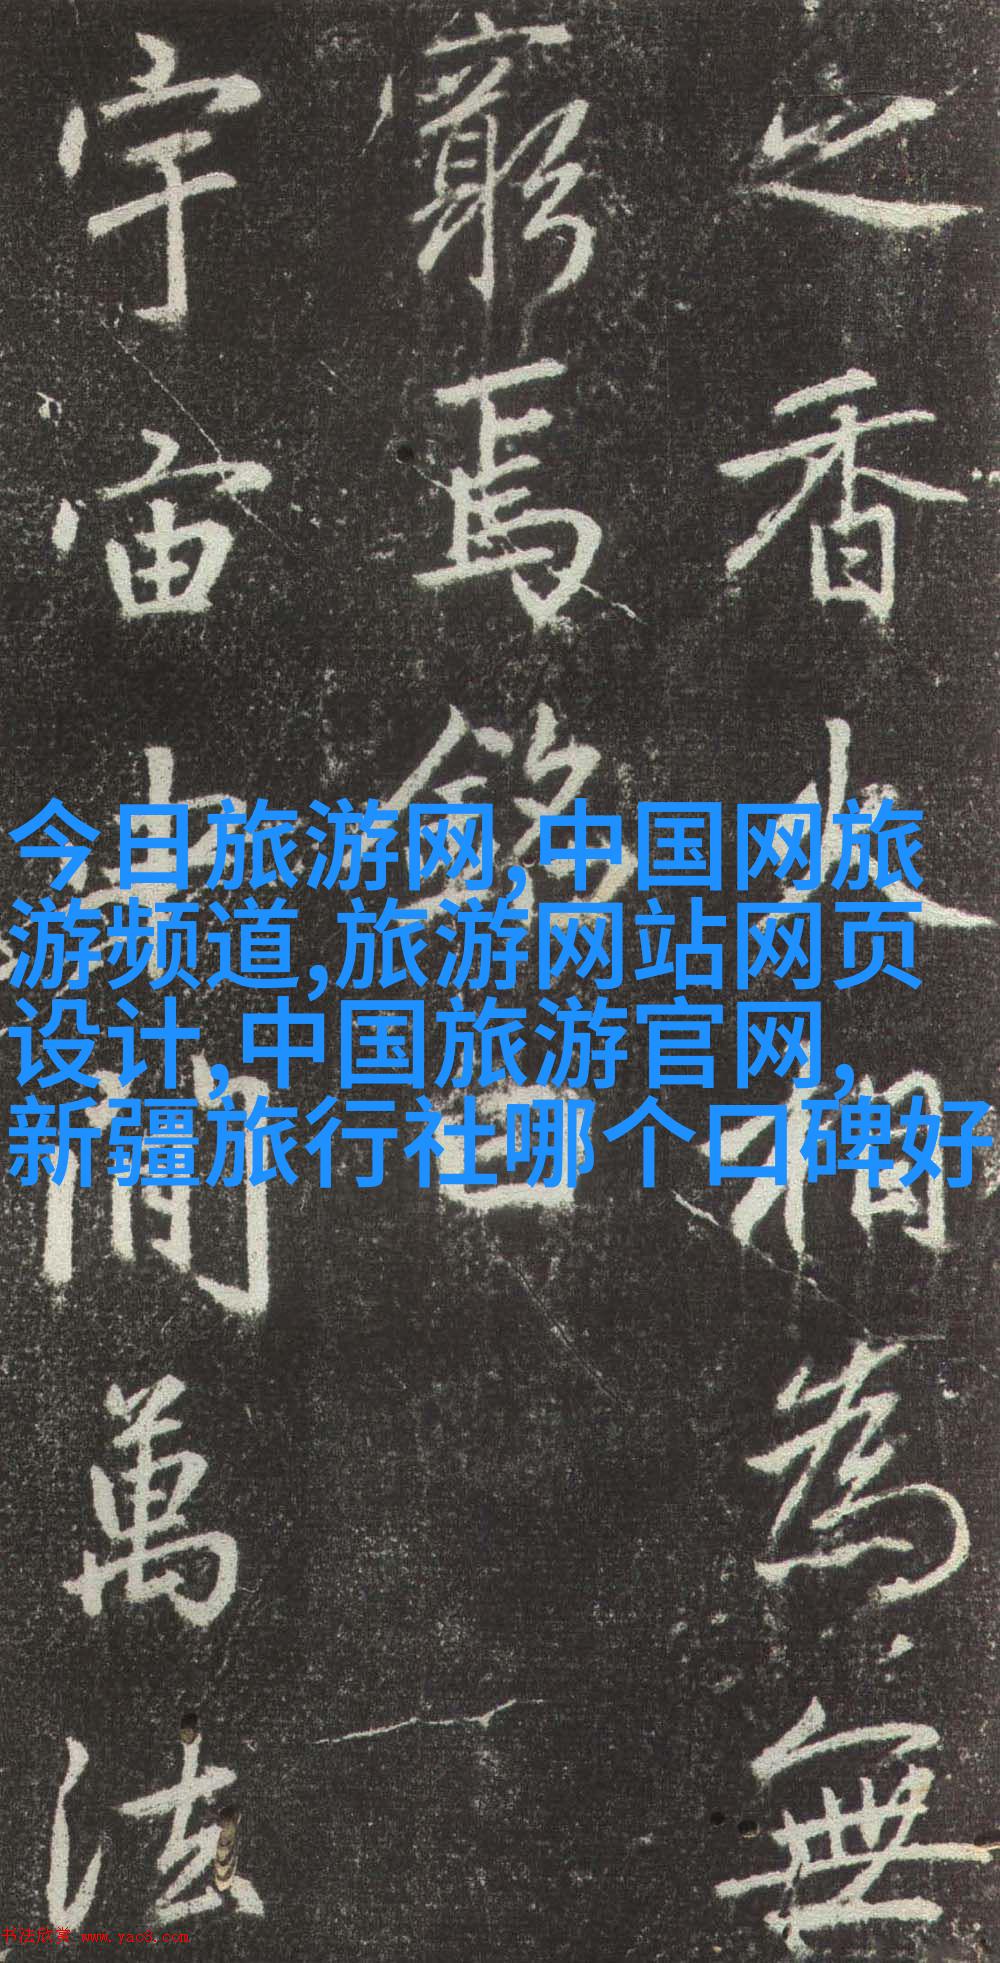 之香火相為無
窮焉銘曰
宇宙之間萬法
今日旅游网,中国网旅
游频道,旅游网站网页
设计,中国旅游官网,
新疆旅行社哪个口碑好
书法欣赏 www.yac8.com